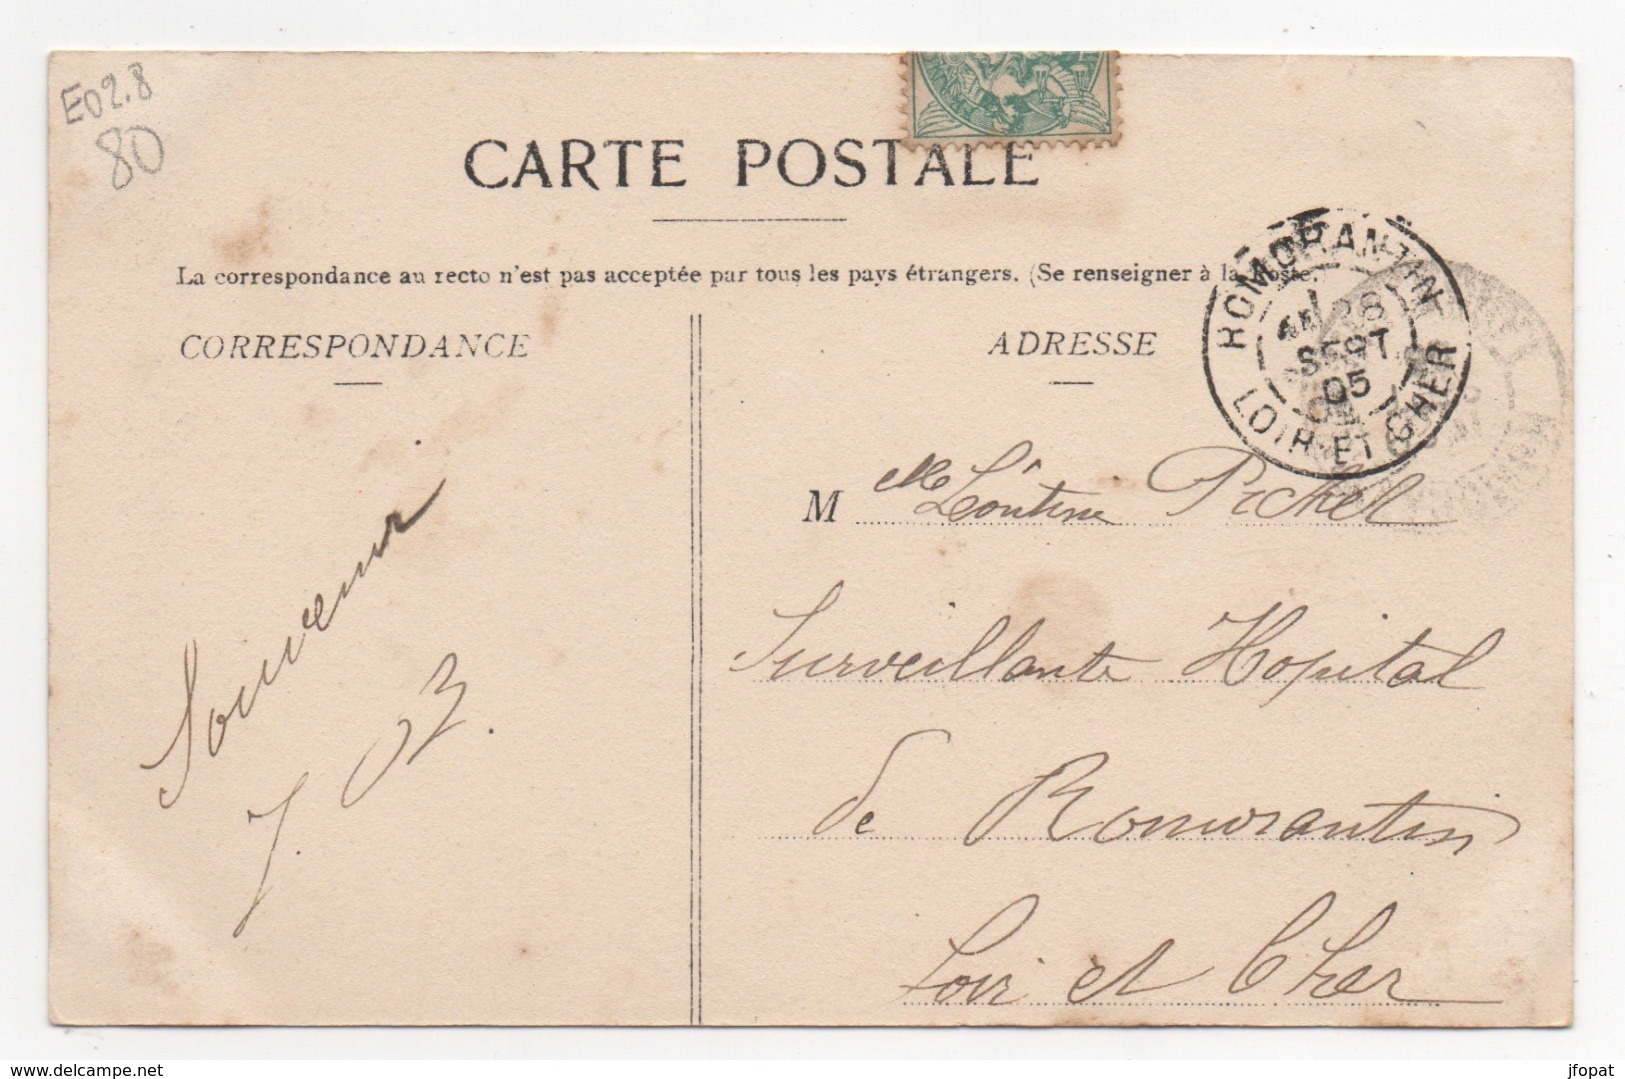 E02.8
80
CARTE POSTALE
La correspondance au recto n'est pas acceptée par tous les pays étrangers. (Se renseigner à la Poste.)
CORRESPONDANCE
ADRESSE
ROMORANTIN
28
SEPT
05
LOIR-ET-CHER
M elle Léontine Pichel
Surveillante Hopital
de Romorantin
Loir et Cher
Souvenir
delcampe.net
jfopat